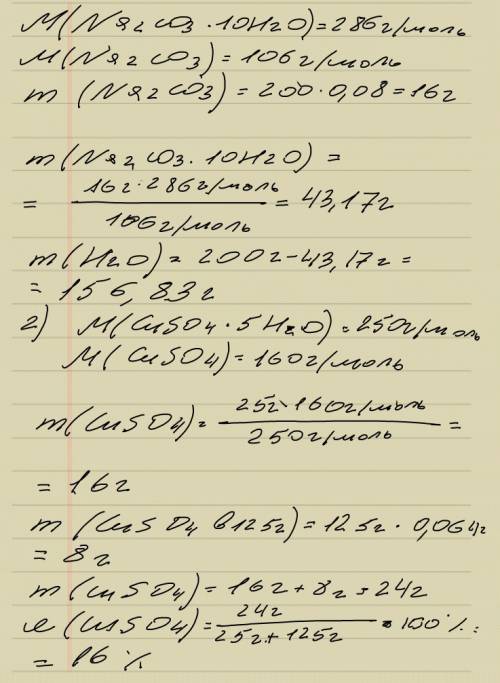 M(Na2CO3·10H2O)=286г/моль
M(Na2CO3)=106г/моль
m(Na2CO3)=200·0,08=16г
m(Na2CO3·10H2O)=
= 16г·286г/моль / 106г/моль = 43,17г
m(H2O)=200г-43,17г=
=156,83г
2) M(CuSO4·5H2O)=250г/моль
M(CuSO4)=160г/моль
m(CuSO4)= 25г·160г/моль / 250г/моль =
=16г
m(CuSO4 в125г)=125г·0,064г
=8г
m(CuSO4)=16г+8г=24г
w(CuSO4)= 24г / 25г+125г ·100%=
=16%